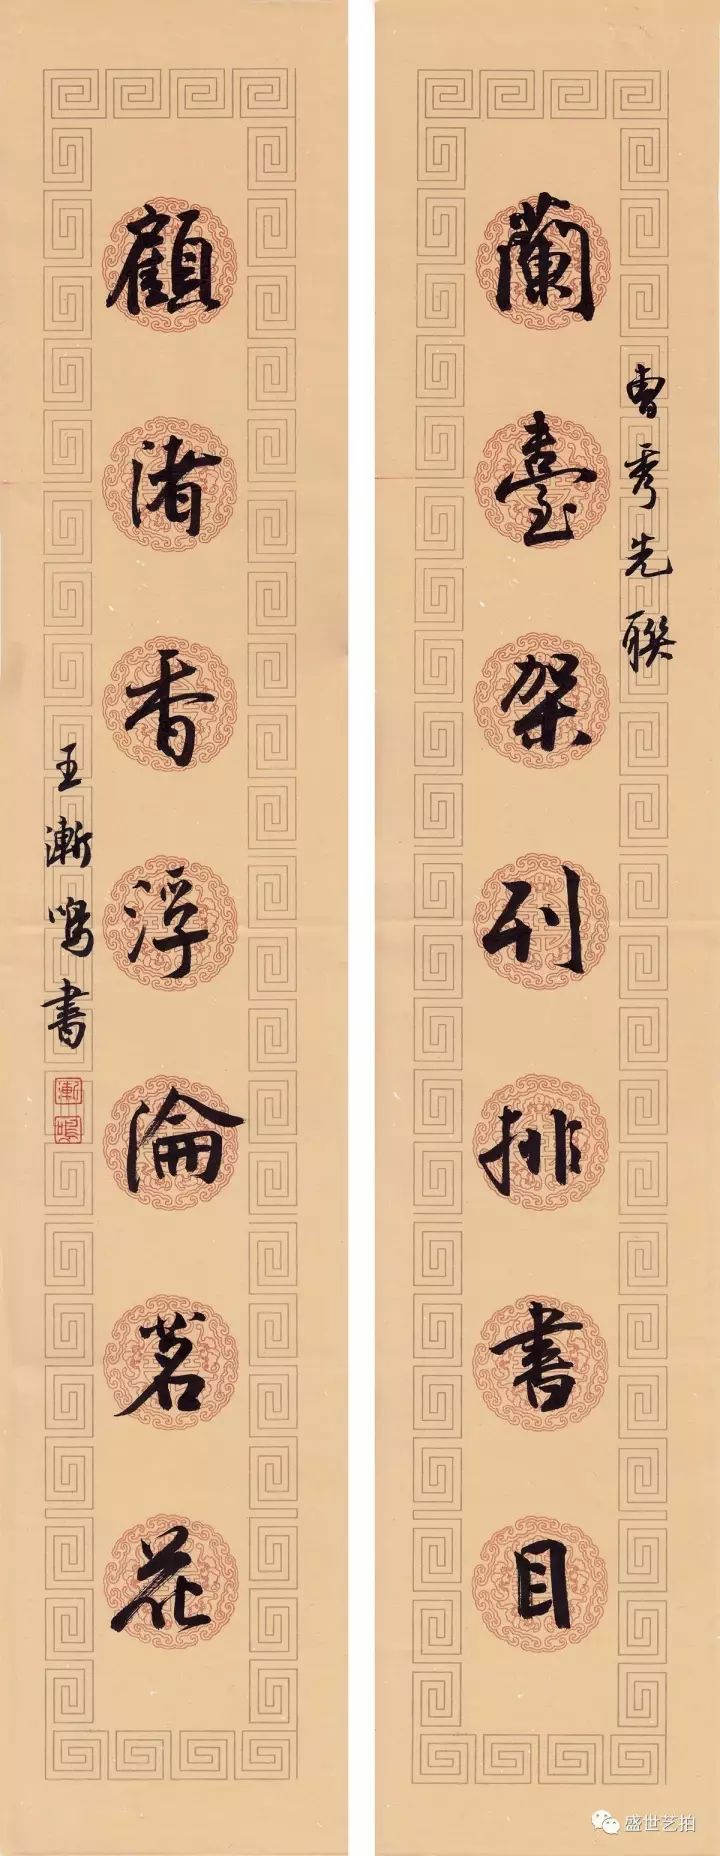 曹秀先联
蘭臺架列排書目
顧渚香浮瀹茗花
王漸鳴書
漸鳴
盛世艺拍